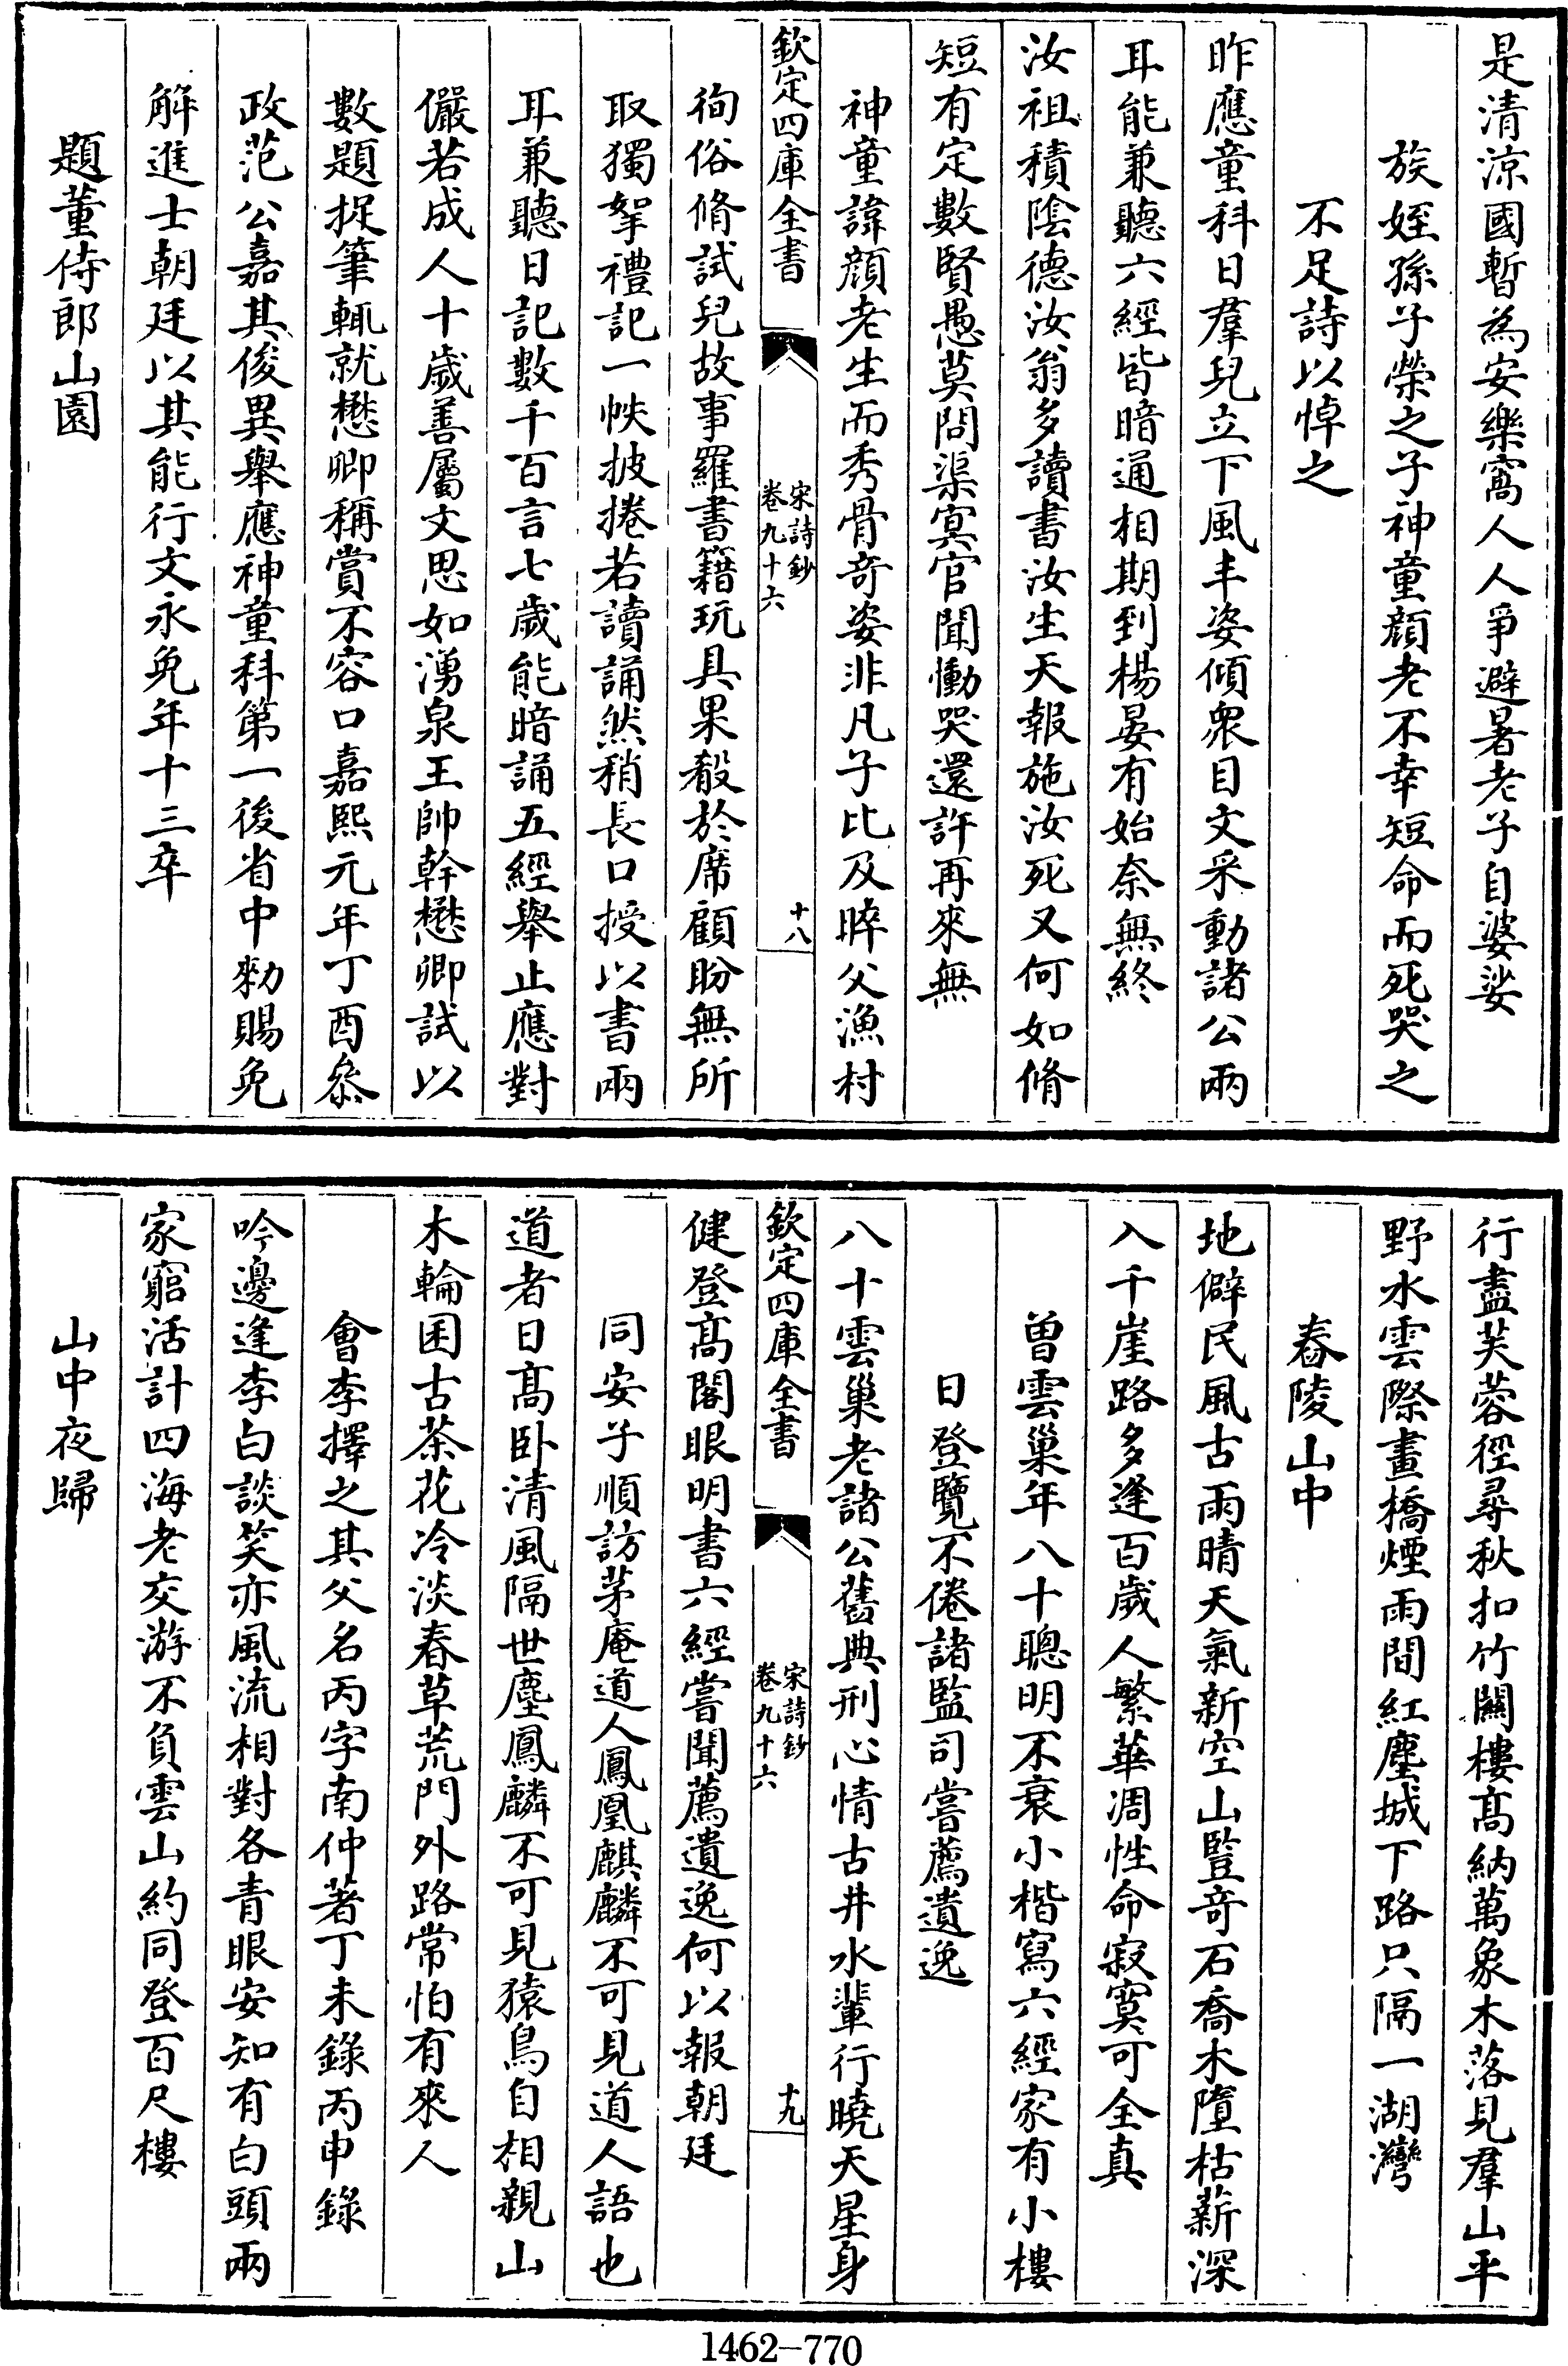 是清涼國暫為安樂窩人人爭避暑老子自婆娑
族姪孫子榮之子神童顔老不幸短命而死哭之
不足詩以悼之
昨應童科日羣兒立下風丰姿傾衆目文采動諸公兩
耳能兼聽六經皆暗通相期到楊晏有始奈無終
汝祖積陰德汝翁多讀書汝生天報施汝死又何如脩
短有定數賢愚莫問渠冥官聞慟哭還許再來無
神童諱顔老生而秀骨奇姿非凡子比及晬父漁村
欽定四庫全書
宋詩鈔
卷九十六
十八
徇俗脩試兒故事羅書籍玩具果殽於席顧盼無所
取獨拏禮記一帙披捲若讀誦然稍長口授以書兩
耳兼聽日記數千百言七歲能暗誦五經舉止應對
儼若成人十歲善屬文思如湧泉王帥幹懋卿試以
數題捉筆輒就懋卿稱賞不容口嘉熙元年丁酉叅
政范公嘉其俊異舉應神童科第一後省中勑賜免
解進士朝廷以其能行文永免年十三卒
題董侍郎山園
行盡芙蓉徑尋秋扣竹關樓高納萬象木落見羣山平
野水雲際畫橋煙雨間紅塵城下路只隔一湖灣
舂陵山中
地僻民風古雨晴天氣新空山豎奇石喬木墮枯薪深
入千崖路多逢百歲人繁華凋性命寂寞可全真
曾雲巢年八十聰明不衰小楷寫六經家有小樓
日登覽不倦諸監司嘗薦遺逸
八十雲巢老諸公舊典刑心情古井水輩行曉天星身
欽定四庫全書
宋詩鈔
卷九十六
十九
健登高閣眼明書六經嘗聞薦遺逸何以報朝廷
同安子順訪茅庵道人鳳凰麒麟不可見道人語也
道者日高卧清風隔世塵鳳麟不可見猿鳥自相親山
木輪囷古茶花冷淡春草荒門外路常怕有來人
會李擇之其父名丙字南仲著丁未錄丙申錄
吟邊逢李白談笑亦風流相對各青眼安知有白頭兩
家窮活計四海老交游不負雲山約同登百尺樓
山中夜歸
1462-770